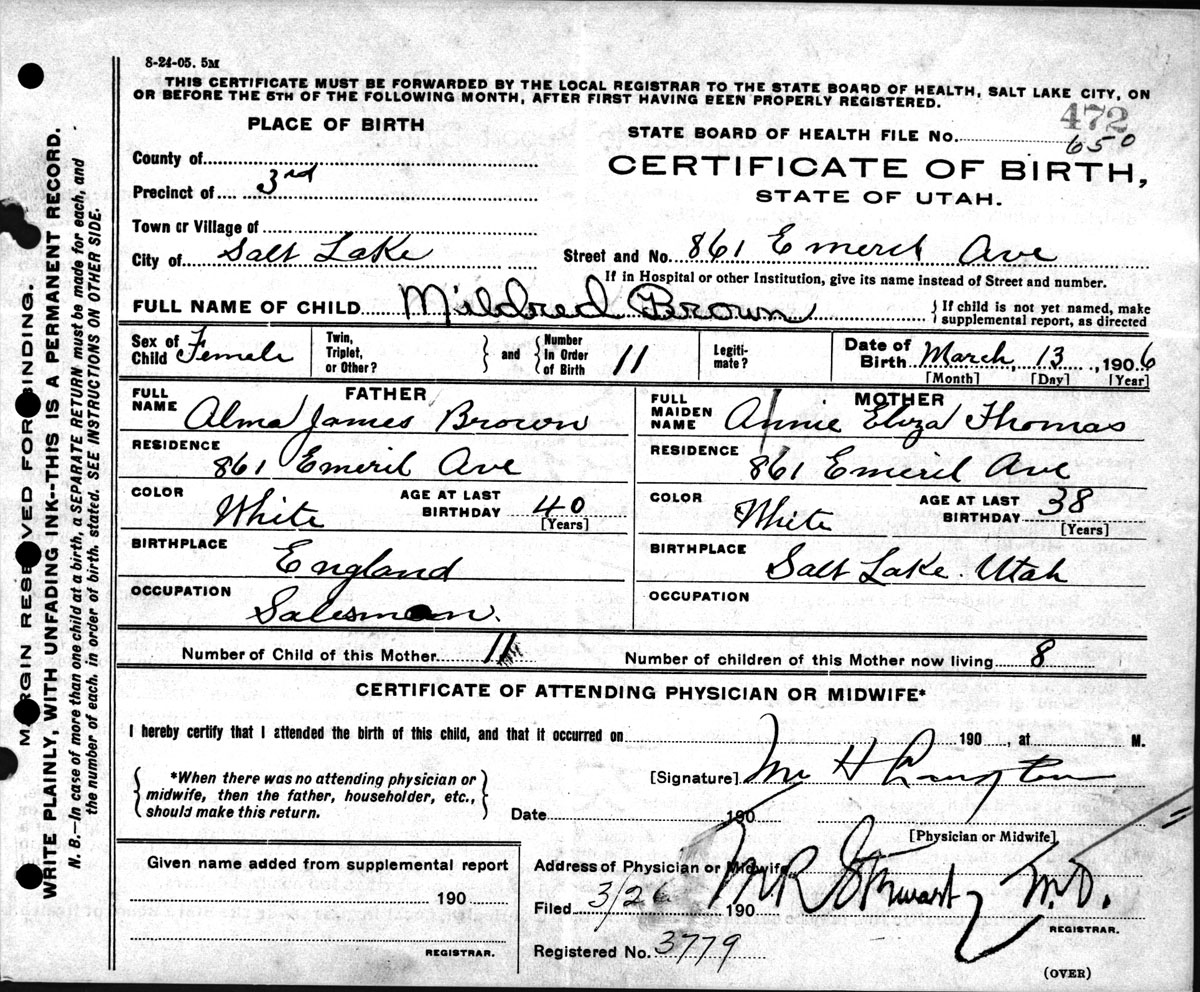 8-24-05. 5M
THIS CERTIFICATE MUST BE FORWARDED BY THE LOCAL REGISTRAR TO THE STATE BOARD OF HEALTH, SALT LAKE CITY, ON
OR BEFORE THE 5TH OF THE FOLLOWING MONTH, AFTER FIRST HAVING BEEN PROPERLY REGISTERED.
472
PLACE OF BIRTH
STATE BOARD OF HEALTH FILE NO. 650
County of
CERTIFICATE OF BIRTH,
Precinct of 3rd
STATE OF UTAH.
Town or Village of
City of Salt Lake
Street and No. 861 Emeril Ave
If in Hospital or other Institution, give its name instead of Street and number.
FULL NAME OF CHILD Mildred Brown
If child is not yet named, make
supplemental report, as directed
Sex of Child Female
Twin, Triplet, or Other?
and
Number In Order of Birth 11
Legiti-mate?
Date of Birth March, 13, 1906
[Month] [Day] [Year]
FATHER
FULL NAME Alma James Brown
RESIDENCE 861 Emeril Ave
COLOR White
AGE AT LAST BIRTHDAY 40
[Years]
BIRTHPLACE England
OCCUPATION Salesman.
MOTHER
FULL MAIDEN NAME Annie Eliza Thomas
RESIDENCE 861 Emeril Ave
COLOR White
AGE AT LAST BIRTHDAY 38
[Years]
BIRTHPLACE Salt Lake. Utah
OCCUPATION
Number of Child of this Mother 11
Number of children of this Mother now living 8
CERTIFICATE OF ATTENDING PHYSICIAN OR MIDWIFE*
I hereby certify that I attended the birth of this child, and that it occurred on 190 , at M.
*When there was no attending physician or
midwife, then the father, householder, etc.,
should make this return.
[Signature] H
Date 190
[Physician or Midwife]
Given name added from supplemental report
190
REGISTRAR.
Address of Physician or Midwife
Filed 3/26 190
Stewart M.D.
REGISTRAR.
Registered No. 3779
(OVER)
MARGIN RESERVED FOR BINDING.
WRITE PLAINLY, WITH UNFADING INK--THIS IS A PERMANENT RECORD.
N. B.—In case of more than one child at a birth, a SEPARATE RETURN must be made for each, and
the number of each, in order of birth, stated. SEE INSTRUCTIONS ON OTHER SIDE.